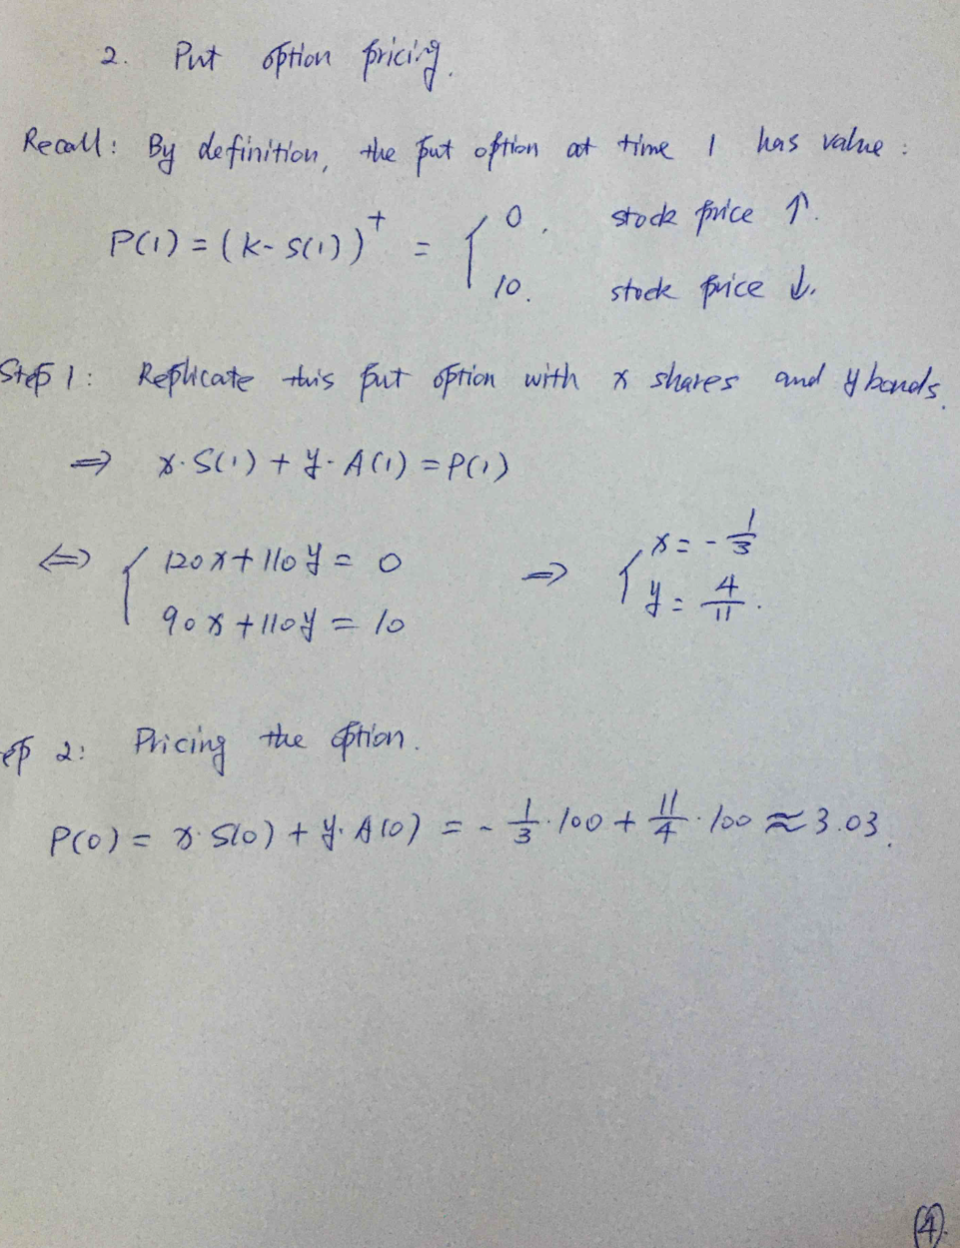 2. Put option pricing.
Recall: By definition, the put option at time 1 has value:
P(1) = (K - S(1))⁺ = { 0, stock price ↑.
10. stock price ↓.
Step 1: Replicate this put option with x shares and y bonds.
⇒ x·S(1) + y·A(1) = P(1)
⇔ { 120x + 110y = 0 ⇒ { x = -1/3
90x + 110y = 10 y = 4/11.
ep 2: Pricing the option.
P(0) = x·S(0) + y·A(0) = -1/3·100 + 11/4·100 ≈ 3.03.
4.